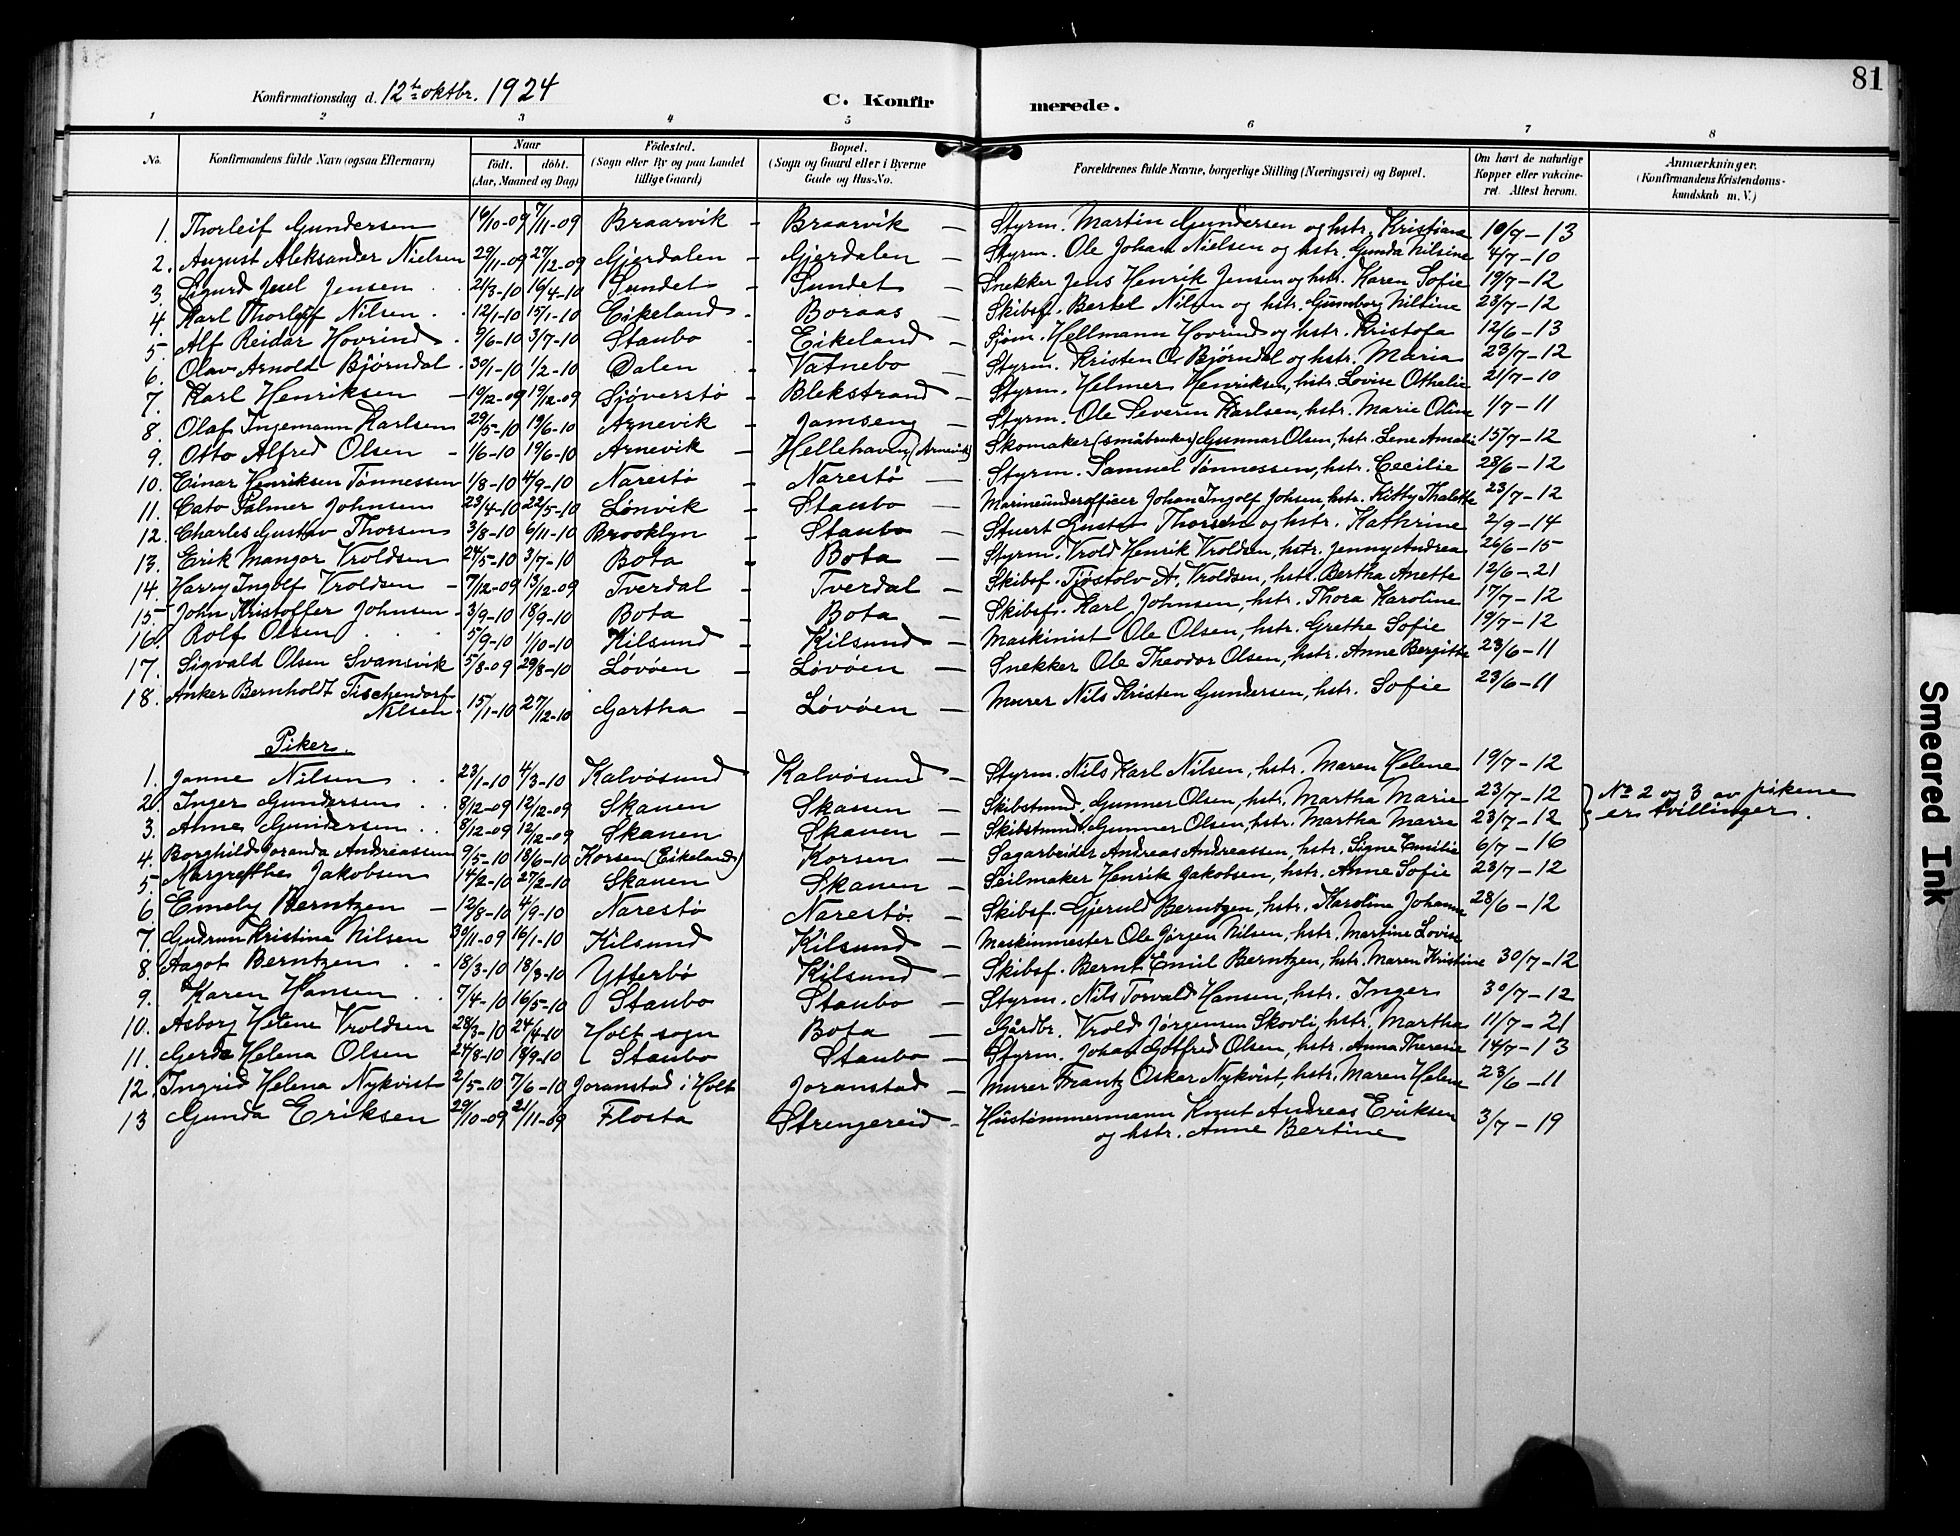 81
Konfirmationsdag d. 12te oktbr. 1924 C. Konfirmerede.
1 2 3 4 5 6 7 8
No. Konfirmandens fulde Navn (ogsaa Efternavn) Naar födt. döbt. (Aar, Maaned og Dag) Födested. (Sogn eller By og paa Landet tillige Gaard) Bopæl. (Sogn og Gaard eller i Byerne Gade og Hus-No. Forældrenes fulde Navne, borgerlige Stilling (Næringsvei) og Bopæl. Om havt de naturlige Kopper eller vaccineret. Attest herom. Anmærkninger. (Konfirmandens Kristendomskundskab m. V.)
1. Thorleif Gundersen 16/10-09 7/11-09 Braarvik - Braarvik - Styrm. Martin Gundersen og hstr. Kristiane 10/9-13
2. August Aleksander Nielsen 29/11-09 27/12-09 Gjerdalen - Gjerdalen - Styrm. Ole Johan Nielsen og hstr. Gunda Nilsine 4/7-10
3. Sigurd Josel Jensen 21/3-10 16/4-10 Sundet - Sundet - Snekker Jens Henrik Jensen og hstr. Karen Sofie 19/7-12
4. Karl Thorleif Nilsen 12/1-10 15/1-10 Eikeland - Boraas - Skibsf. Bertel Nilsen og hstr. Gunborg Nilsine 23/7-12
5. Alf Reidar Hovrind 9/6-10 3/7-10 Staubo - Eikeland - Sjøm. Hellmann Hovrind og hstr. Kristofa 12/6-13
6. Olav Arnold Björndal 30/1-10 1/2-10 Dalen - Vatnebo - Styrm. Kristen O. Björndal og hstr. Maria 23/7-12
7. Karl Henriksen - 19/12-09 19/12-09 Sjøverstø - Blekstrand - Styrm. Helmer Henriksen, hstr. Lovise Othelie 21/7-10
8. Olaf Ingemann Karlsen 29/5-10 19/6-10 Arnevik - Jamseng - Styrm. Ole Severin Karlsen, hstr. Marie Oline 1/7-11
9. Otto Alfred Olsen - 1/6-10 19/6-10 Arnevik - Hellehaven (Arnevik) Skomaker (småbruker) Gunnar Olsen, hstr. Lene Amalie 15/7-12
10. Einar Henriksen Tönnessen 1/8-10 4/9-10 Narestø - Narestø - Styrm. Samuel Tønnessen, hstr. Cecilie 28/6-12
11. Cato Palmer Johnsen 23/4-10 22/5-10 Lønvik - Staubo - Marineunderofficer Johan Ingolf Johsen, hstr. Kitty Thalette 23/7-12
12. Charles Gustav Thorsen 3/8-10 6/11-10 Brooklyn - Staubo - Stuert Gustav Thorsen og hstr. Kathrine 2/9-14
13. Erik Mangor Vroldsen 24/5-10 3/7-10 Bota - Bota - Styrm. Vrold Henrik Vroldsen, hstr. Jenny Andrea 26/6-15
14. Harry Ingolf Vroldsen - 7/12-09 13/12-09 Tverdal - Tverdal - Skibsf. Tjøstolv A. Vroldsen, hstr. Bertha Anette 12/6-21
15. John Kristoffer Johnsen - 3/9-10 18/9-10 Bota - Bota - Skibsf. Karl Johnsen, hstr. Thora Karoline 17/7-12
16. Rolf Olsen 5/9-10 1/10-10 Kilsund - Kilsund - Maskinist Ole Olsen, hstr. Grethe Sofie 19/7-12
17. Sigvald Olsen Svansvik 5/8-09 29/8-10 Løvøen - Løvøen - Snekker Ole Theodor Olsen, hstr. Anne Bergitte 23/6-11
18. Anker Bernholdt Tischendorf Nilsen 15/1-10 27/12-10 Gartha - Løvøen - Murer Nils Kristen Gundersen, hstr. Sofie 23/6-11
Piker.
1. Janne Nilsen 23/1-10 4/3-10 Kalvösund Kalvösund - Styrm. Nils Karl Nilsen, hstr. Maren Helene 19/7-12
2. Inger Gundersen 8/12-09 12/12-09 Skauen Skauen - Skibstmd. Gunner Olsen, hstr. Martha Marie 23/7-12 } No 2 og 3 av pikene
3. Anne Gundersen 8/12-09 12/12-09 Skauen Skauen - Skibstmd. Gunner Olsen, hstr. Martha Marie 23/7-12 er tvillinger.
4. Borghild Joranda Andreassen 9/5-10 18/6-10 Korsen (Eikeland) Korsen - Sagarbeider Andreas Andreassen, hstr. Signe Emilie 6/7-16
5. Margrethe Jakobsen 14/2-10 27/2-10 Skauen Skauen - Seilmaker Henrik Jakobsen, hstr. Anne Sofie 23/7-12
6. Emely Berntzen - 12/8-10 4/9-10 Narestø Narestø. - Skibsf. Gjeruld Berntzen, hstr. Karoline Johanne 28/6-12
7. Gudrun Kristina Nilsen 30/11-09 16/1-10 Kilsund Kilsund - Maskinmester Ole Jörgen Nilsen, hstr. Martine Lovise
8. Aagot Berntzen 18/3-10 18/3-10 Ytterbö Kilsund - Skibsf. Bernt Emil Berntzen, hstr. Maren Kristine 30/7-12
9. Karen Hansen 7/4-10 16/5-10 Staubo Staubo - Styrm. Nils Torvald Hansen, hstr. Inger 30/7-12
10. Asborg Helene Vroldsen 28/3-10 24/4-10 Holt sogn Bota - Gårdbr. Vrold Jørgensen Skovli, hstr. Martha 11/7-21
11. Gerda Helena Olsen 24/8-10 18/9-10 Staubo Staubo - Styrm. Johan Gotfred Olsen, hstr. Anna Theresie 14/7-13
12. Ingrid Helena Nykvist 2/5-10 7/6-10 Joranstad i Holt Joranstad - Murer Frantz Osker Nykvist, hstr. Maren Helene 23/6-11
13 Gunda Eriksen 29/10-09 21/11-09 Flosta Strengereid - Hustimmermann Knut Andreas Eriksen 3/7-19
og hstr. Anne Bertine
Smeared Ink